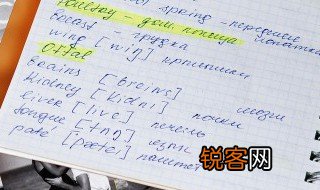 spring - переднее
Poultry - дом. птица
breast - грудка
wing [wiŋ] крылышки
Offal
brains [breins] мозги
kidney [kidni] почки
liver [live] печень
tongue [tʌŋ] язык
paté [pætei] паштет
锐客网